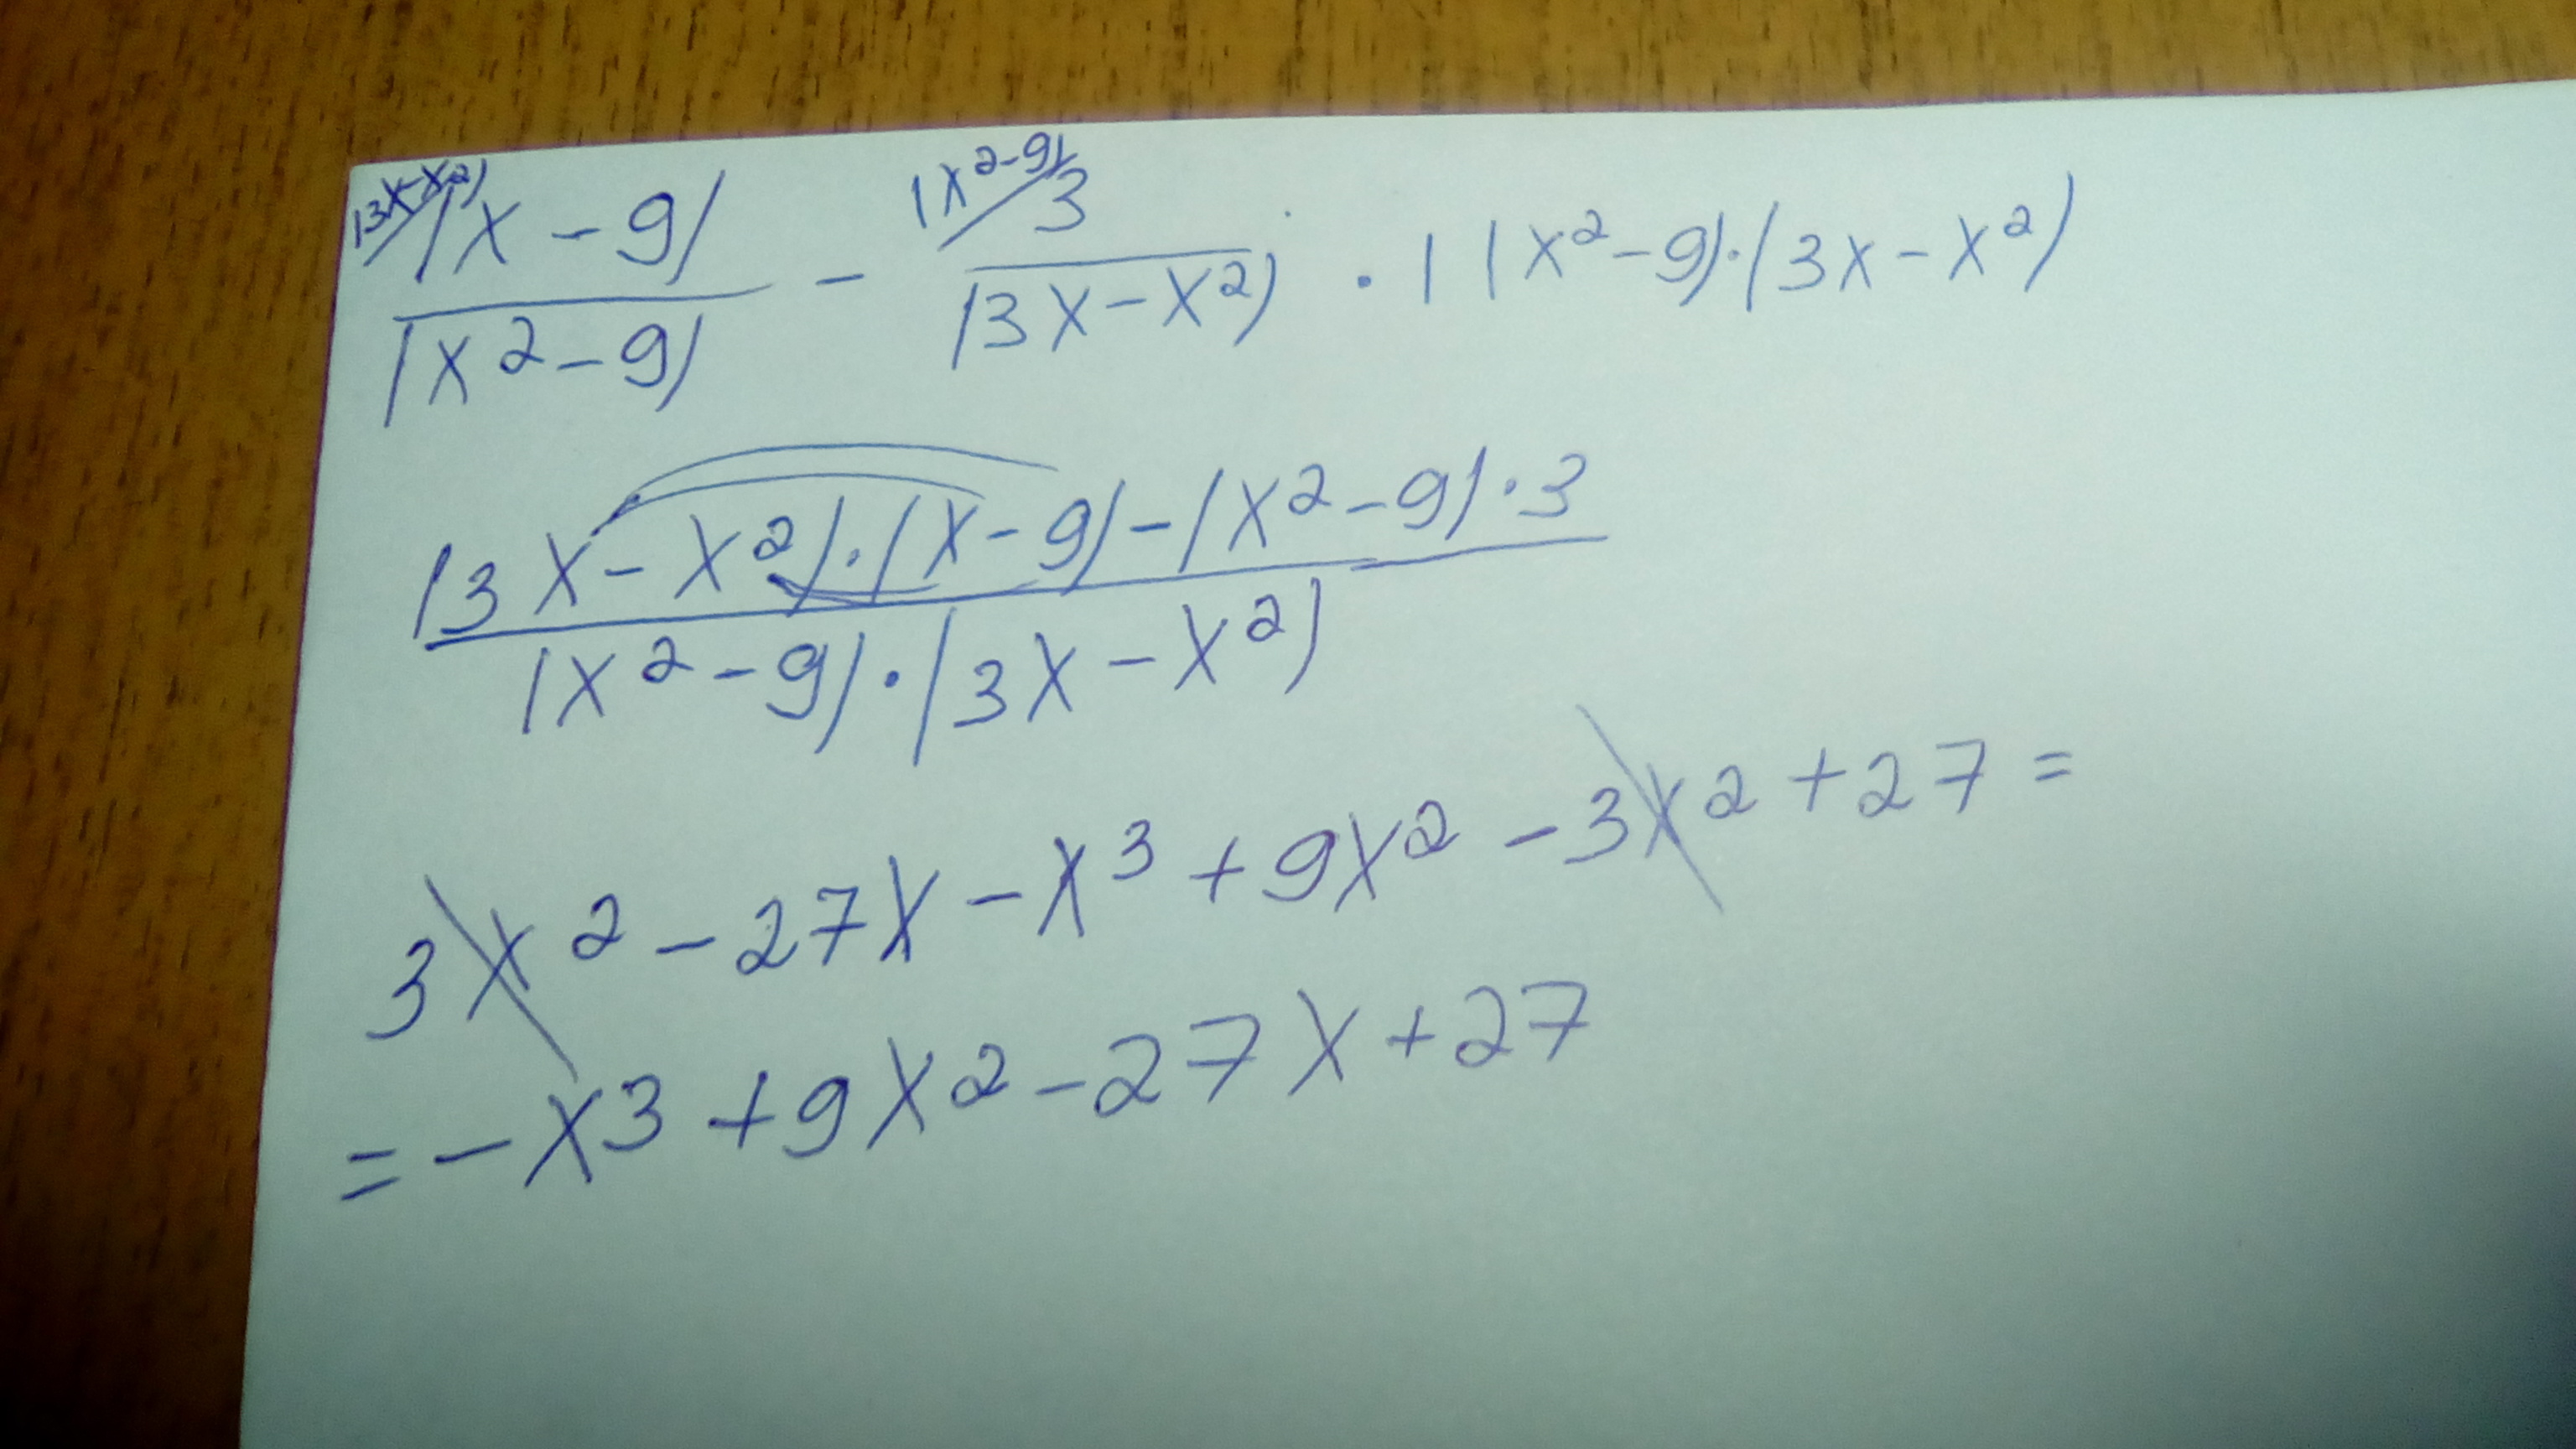 (3x-x²) (x²-9)
(x-9) / (x²-9) - 3 / (3x-x²) · | (x²-9)·(3x-x²)
(3x-x²)·(x-9)-(x²-9)·3
(x²-9)·(3x-x²)
3x²-27x-x³+9x²-3x²+27=
=-x³+9x²-27x+27